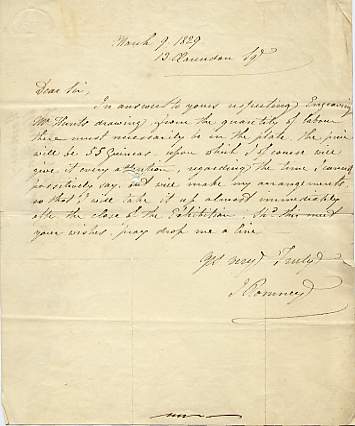 March 9. 1829
13 Clarendon Sqr
Dear Sir,
In answer to yours respecting Engraving
Mr Hunts drawing from the quantity of labour
there must nessisarily be in the plate the price
will be 55 Guineas upon which I of course will
give it every attention, regarding the time I cannot
possitively say, but will make my arrangements
so that I will take it up almost immediately
after the close of the Exhibition. If this meet
your wishes pray drop me a line
Yrs very Truly
J Romney